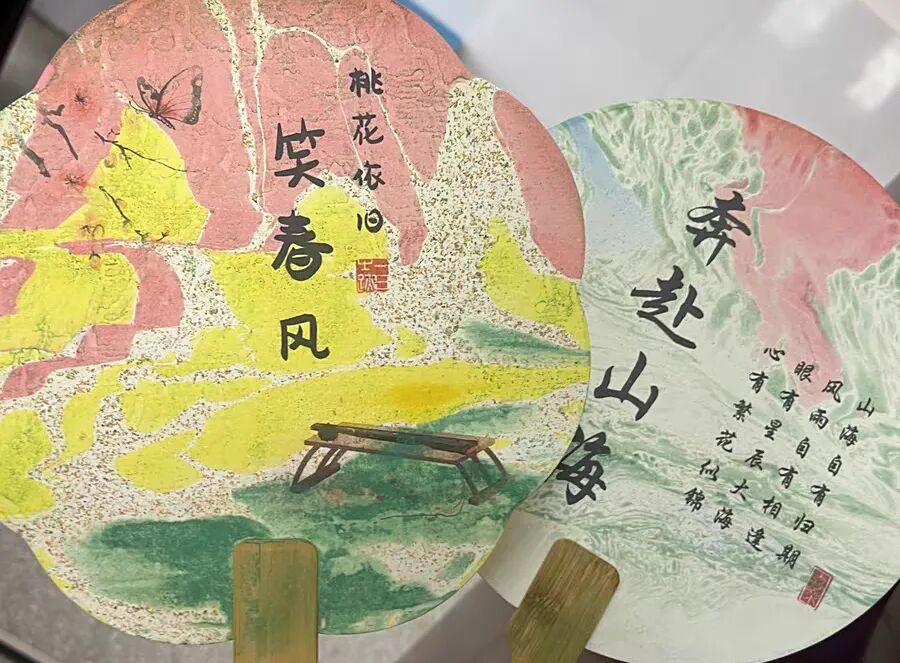 桃花依旧
笑春风
奔赴山海
山海自有归期
风雨自有相逢
眼有星辰大海
心有繁花似錦